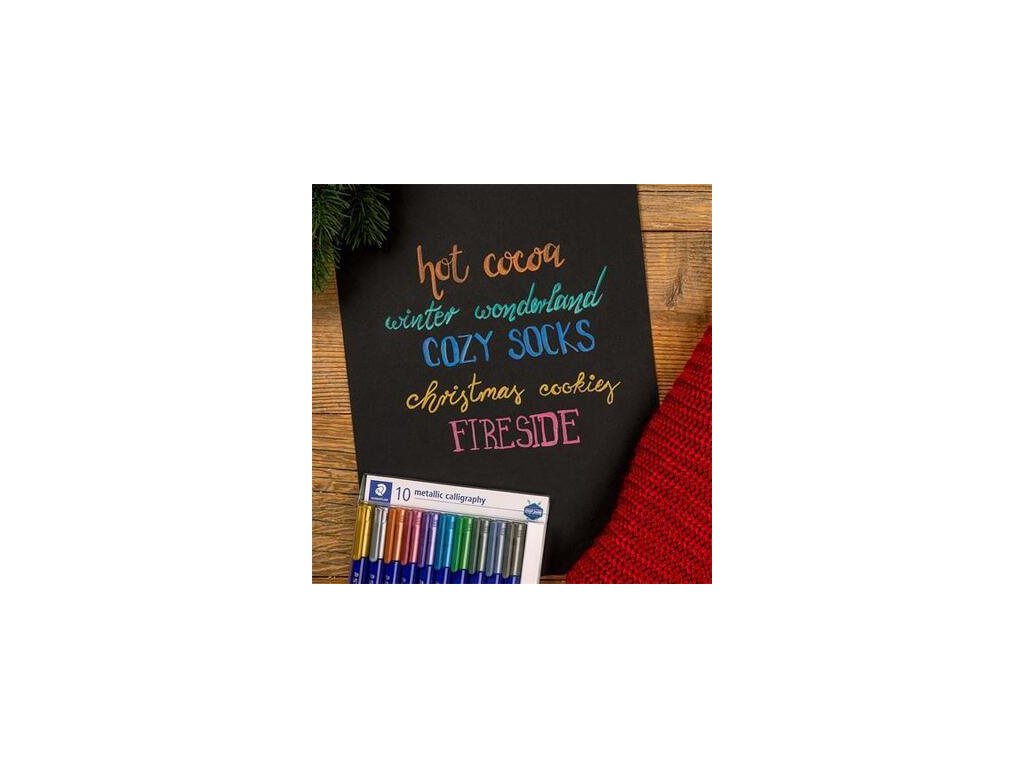 hot cocoa
winter wonderland
COZY SOCKS
christmas cookies
FIRESIDE
10 metallic calligraphy